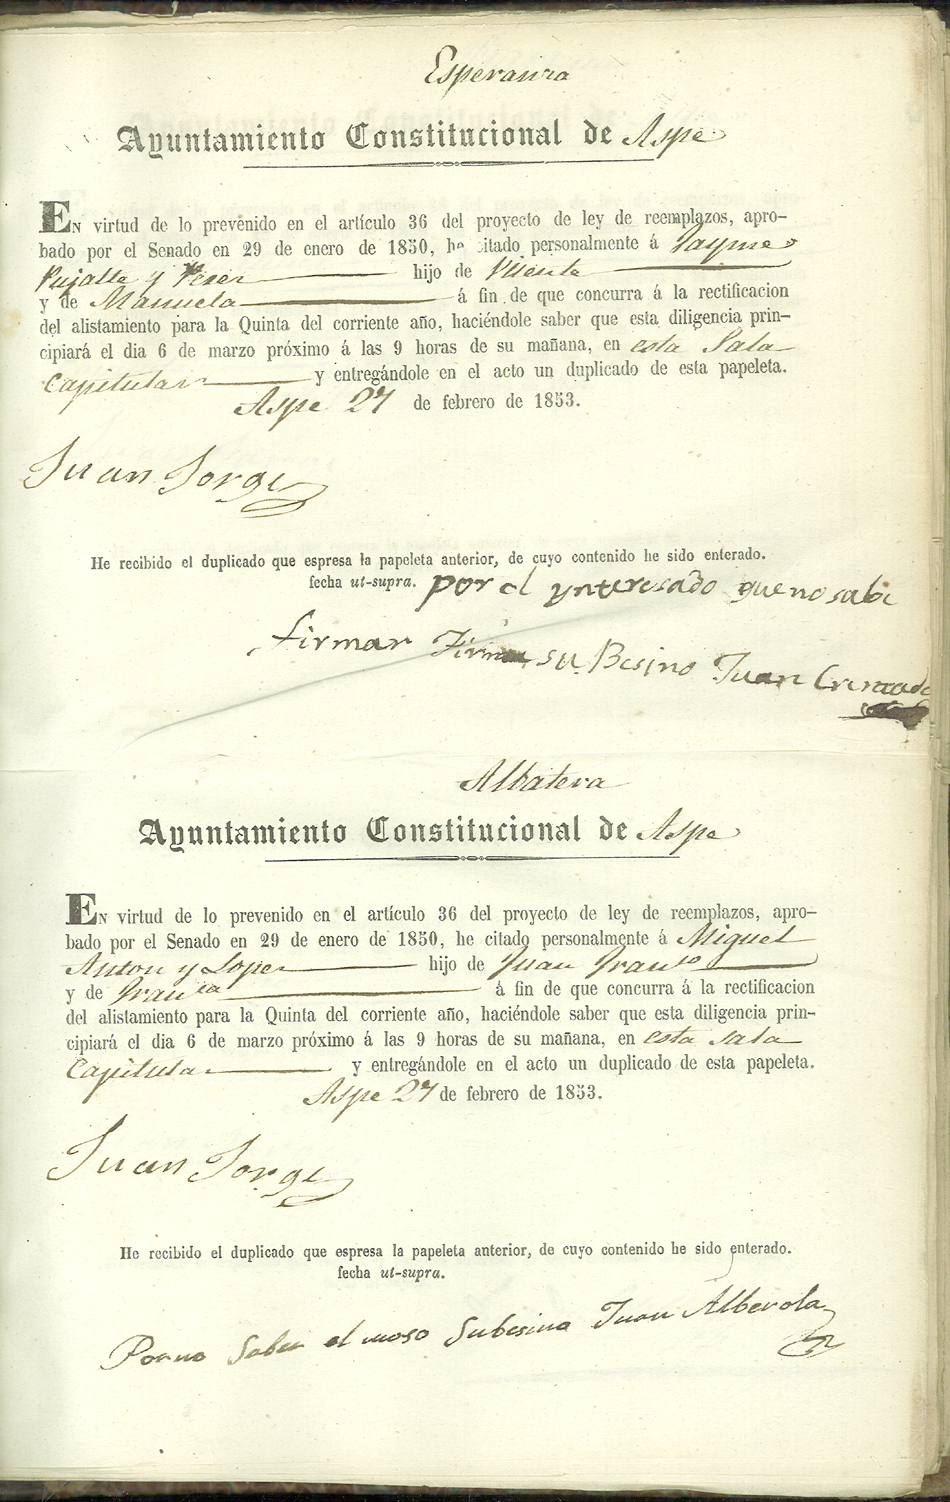 Esperanza
Ayuntamiento Constitucional de Aspe
EN virtud de lo prevenido en el artículo 36 del proyecto de ley de reemplazos, apro-
bado por el Senado en 29 de enero de 1850, he citado personalmente á Jayme
Pujalte y Perez hijo de Vicente
y de Manuela á fin de que concurra á la rectificacion
del alistamiento para la Quinta del corriente año, haciéndole saber que esta diligencia prin-
cipiará el dia 6 de marzo próximo á las 9 horas de su mañana, en esta Sala
Capitular y entregándole en el acto un duplicado de esta papeleta.
Aspe 27 de febrero de 1853.
Juan Jorge
He recibido el duplicado que espresa la papeleta anterior, de cuyo contenido he sido enterado.
fecha ut-supra. por el ynteresado que no sabe
firmar Firma su Besino Juan Cremades
Albatera
Ayuntamiento Constitucional de Aspe
EN virtud de lo prevenido en el artículo 36 del proyecto de ley de reemplazos, apro-
bado por el Senado en 29 de enero de 1850, he citado personalmente á Miguel
Anton y Lopez hijo de Juan Franco
y de Franca á fin de que concurra á la rectificacion
del alistamiento para la Quinta del corriente año, haciéndole saber que esta diligencia prin-
cipiará el dia 6 de marzo próximo á las 9 horas de su mañana, en esta sala
Capitular y entregándole en el acto un duplicado de esta papeleta.
Aspe 27 de febrero de 1853.
Juan Jorge
He recibido el duplicado que espresa la papeleta anterior, de cuyo contenido he sido enterado.
fecha ut-supra.
Por no Saber el moso Subesino Juan Alberola